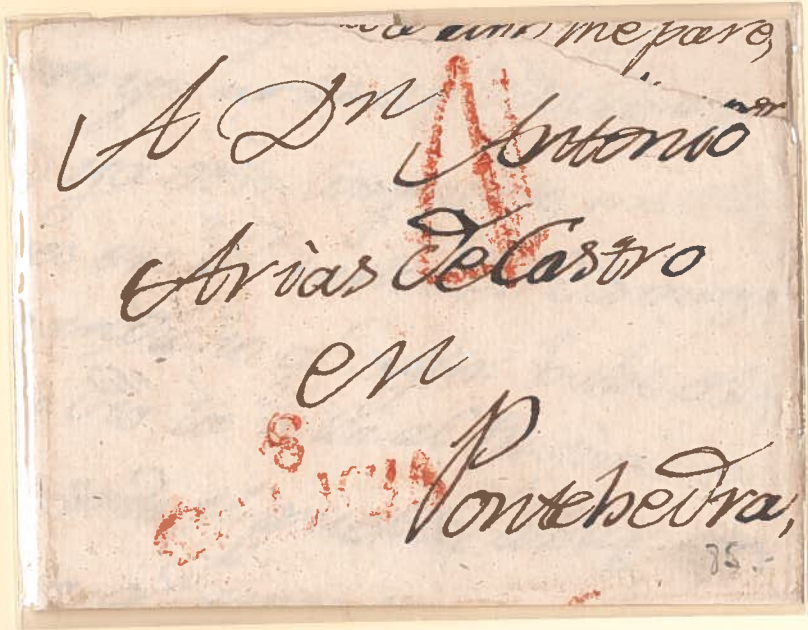 me pare,
A Dn Antonio
Arias de Castro
en
8
Pontebedra,
35.-